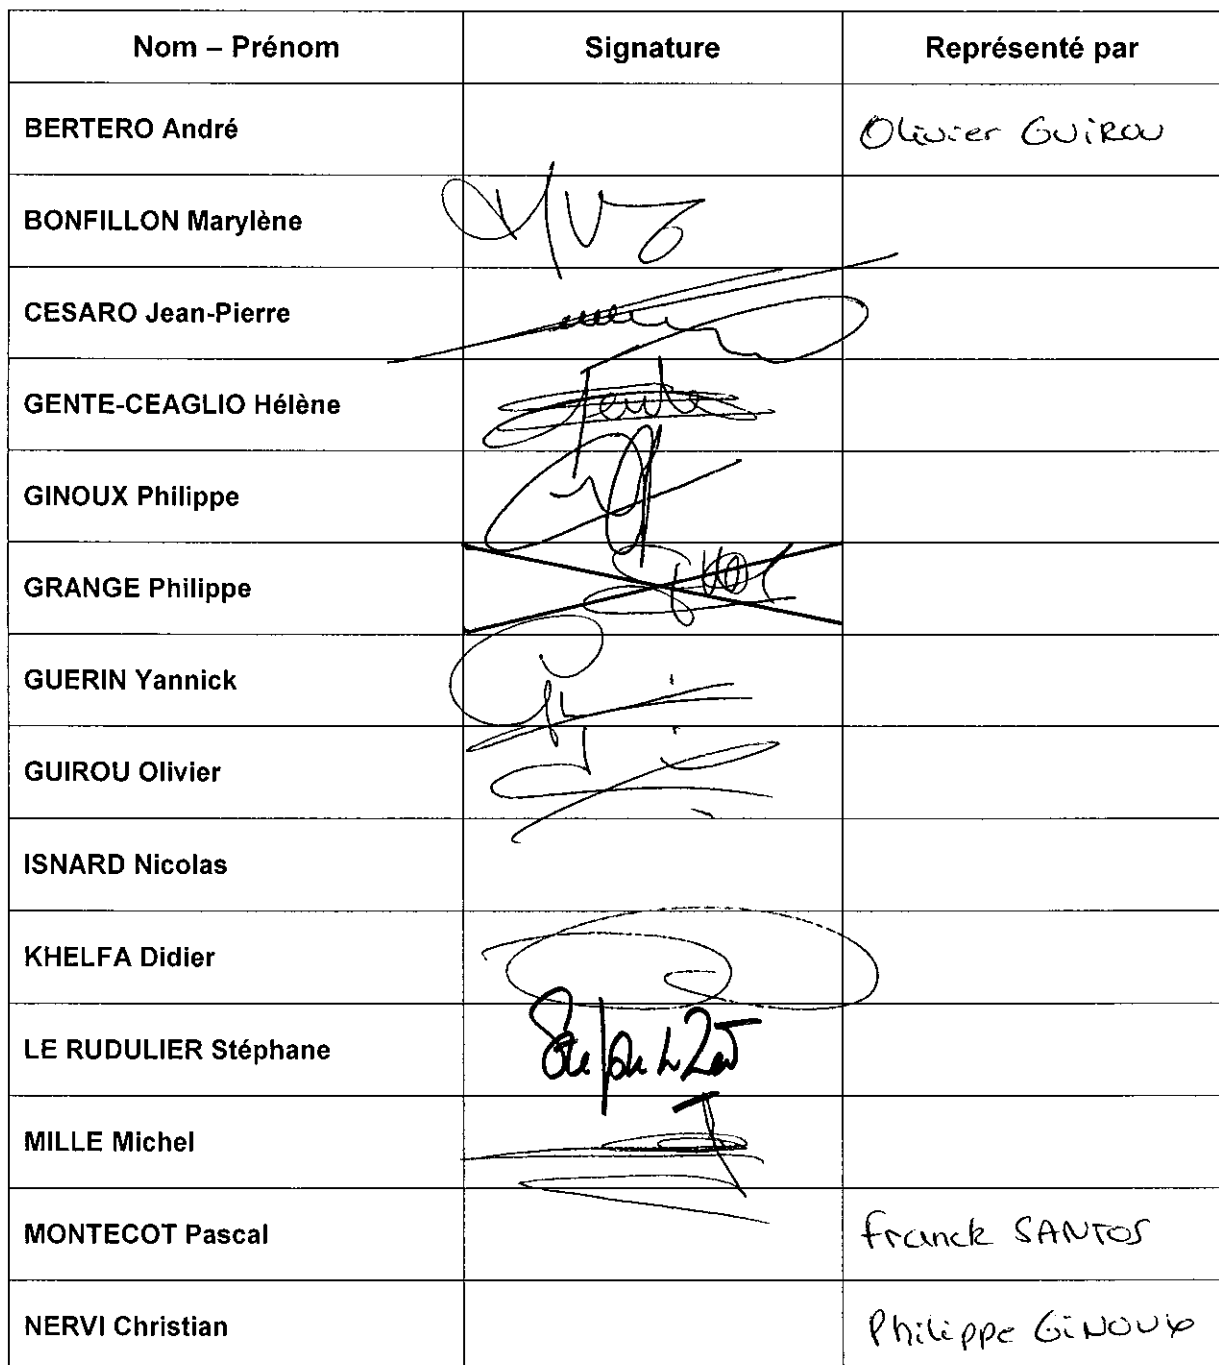 Nom – Prénom Signature Représenté par
BERTERO André Olivier GUIROU
BONFILLON Marylène
CESARO Jean-Pierre
GENTE-CEAGLIO Hélène
GINOUX Philippe
GRANGE Philippe
GUERIN Yannick
GUIROU Olivier
ISNARD Nicolas
KHELFA Didier
LE RUDULIER Stéphane
MILLE Michel
MONTECOT Pascal Franck SANTOS
NERVI Christian Philippe GINOUX